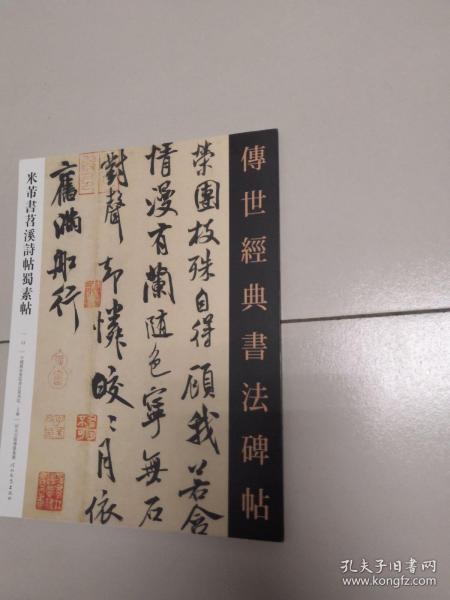 傳世經典書法碑帖
榮團枝殊自得顧我若含
情漫有蘭随色寧無石
對聲却憐皎〻月依
舊滿船行
米芾書苕溪詩帖蜀素帖
孔夫子旧书网
www.kongfz.com